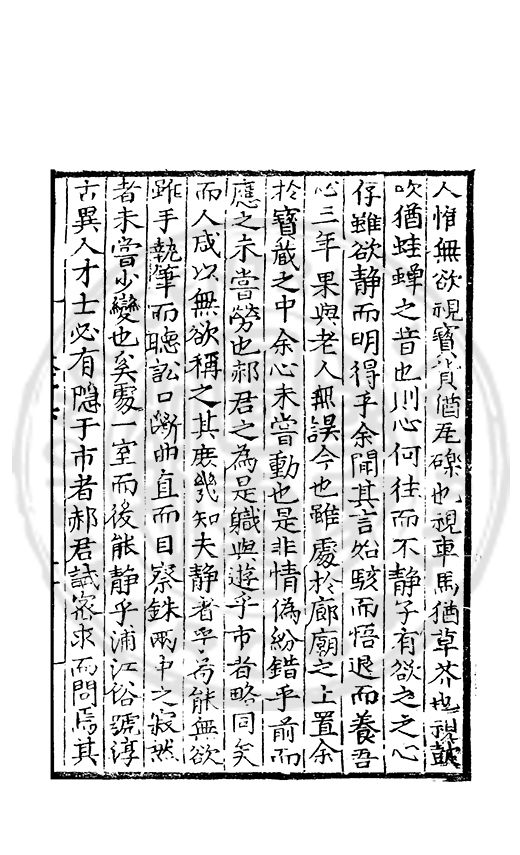 人惟無欲視寳貨猶瓦礫也視車馬猶草芥也視鼓
吹猶蛙蟬之音也則心何往而不静子有欲之之心
存雖欲静而明得乎余聞其言始駭而悟退而養吾
心三年果與老人無誤今也雖處於廊廟之上置余
於寳蔵之中余心未嘗動也是非情偽紛錯乎前而
應之未嘗勞也郝君之為是職與遊乎市者略同矣
而人咸以無欲稱之其庶幾知夫静者乎苟能無欲
雖手執筆而聴訟口斷曲直而目察銖兩中之寂然
者未嘗少變也奚處一室而後能静乎浦江俗號淳
古異人才士必有隠于市者郝君試密求而問焉其